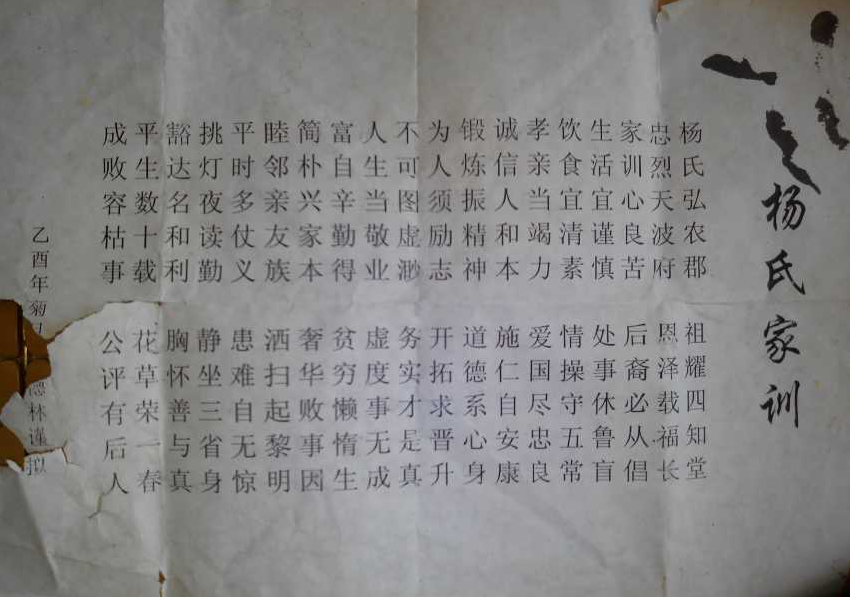 杨氏家训
杨氏弘农郡 祖耀四知堂
忠烈天波府 恩泽载福长
家训心良苦 后裔必从倡
生活宜谨慎 处事休鲁盲
饮食宜清素 情操守五常
孝亲当竭力 爱国尽忠良
诚信人和本 施仁自安康
锻炼振精神 道德系心身
为人须励志 开拓求晋升
不可图虚渺 务实才是真
人生当敬业 虚度事无成
富自辛勤得 贫穷懒惰生
简朴兴家本 奢华败事因
睦邻亲友族 洒扫起黎明
平时多仗义 患难自无惊
挑灯夜读勤 静坐三省身
豁达名和利 胸怀善与真
平生数十载 花草荣一春
成败容枯事 公评有后人
乙酉年菊 德林谨拟